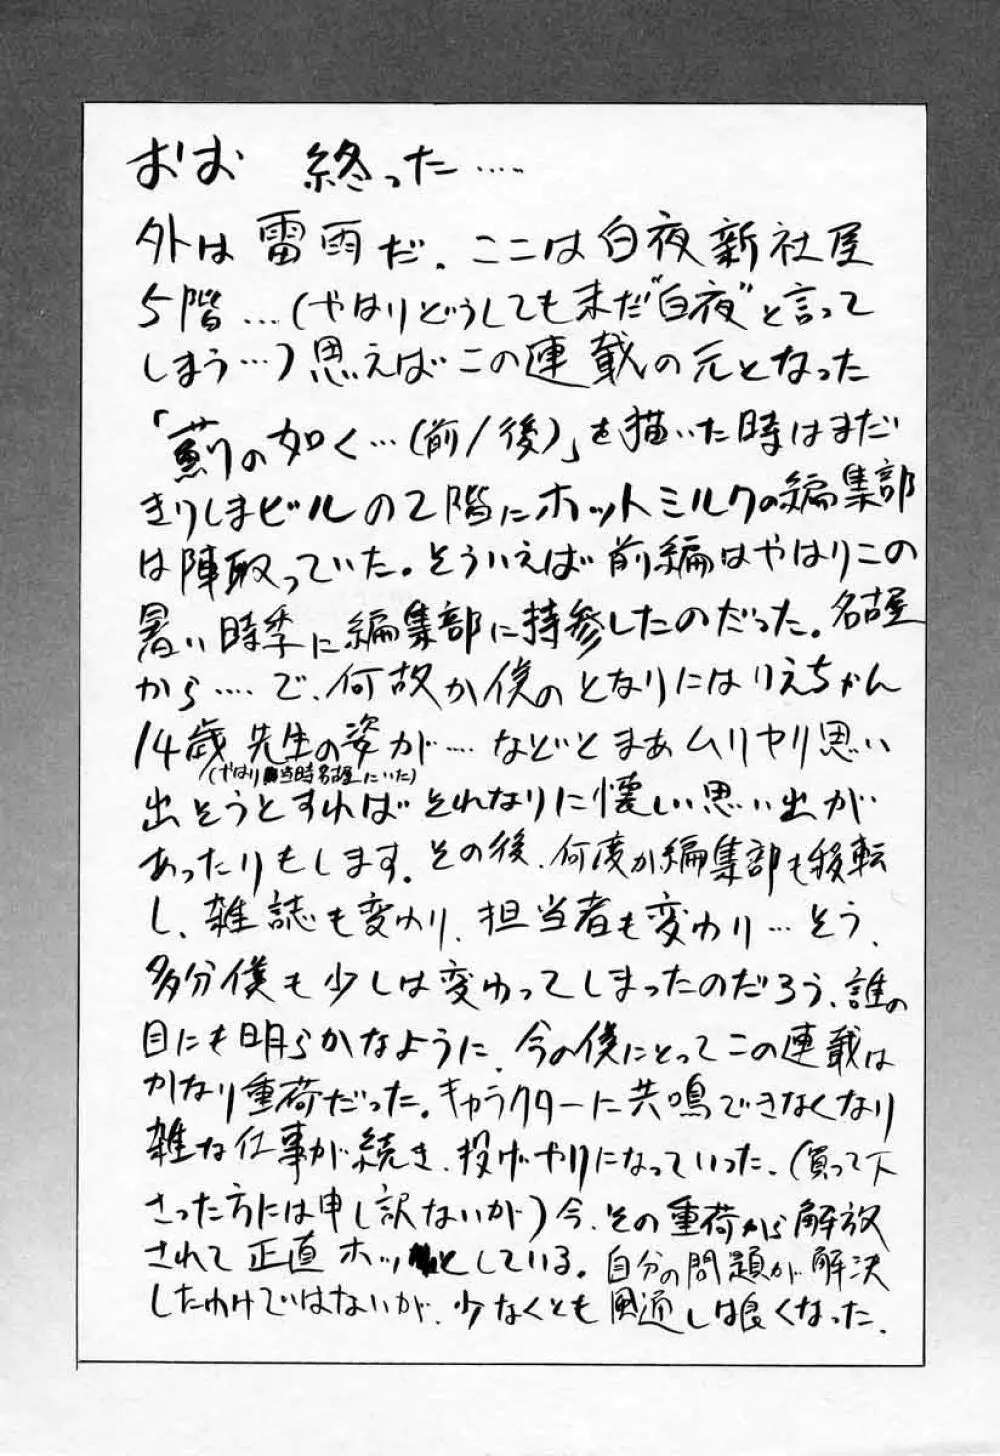 おお　終った……
外は雷雨だ。ここは白夜新社屋
5階…(やはりどうしても未だ"白夜"と言って
しまう…)思えばこの連載の元となった
「薊の如く…(前/後)」を描いた時はまだ
きりしまビルの2階にホットミルクの編集部
は陣取っていた。そういえば前編はやはりこの
暑い時季に編集部に持参したのだった。名古屋
から…．で、何故か僕のとなりにはりえちゃん
14歳先生の姿が…．などとまあムリヤリ思い
(やはり当時名古屋にいた)
出そうとすればそれなりに懐しい思い出が
あったりもします。その後、何度か編集部も移転
し、雑誌も変わり、担当者も変わり…そう、
多分僕も少しは変わってしまったのだろう、誰の
目にも明らかなように、今の僕にとってこの連載は
かなり重荷だった。キャラクターに共鳴できなくなり
雑な仕事が続き、投げやりになっていった。(買って下
さった方には申し訳ないが)今、その重荷から解放
されて正直ホッとしている。自分の問題が解決
したわけではないが、少なくとも風通しは良くなった。